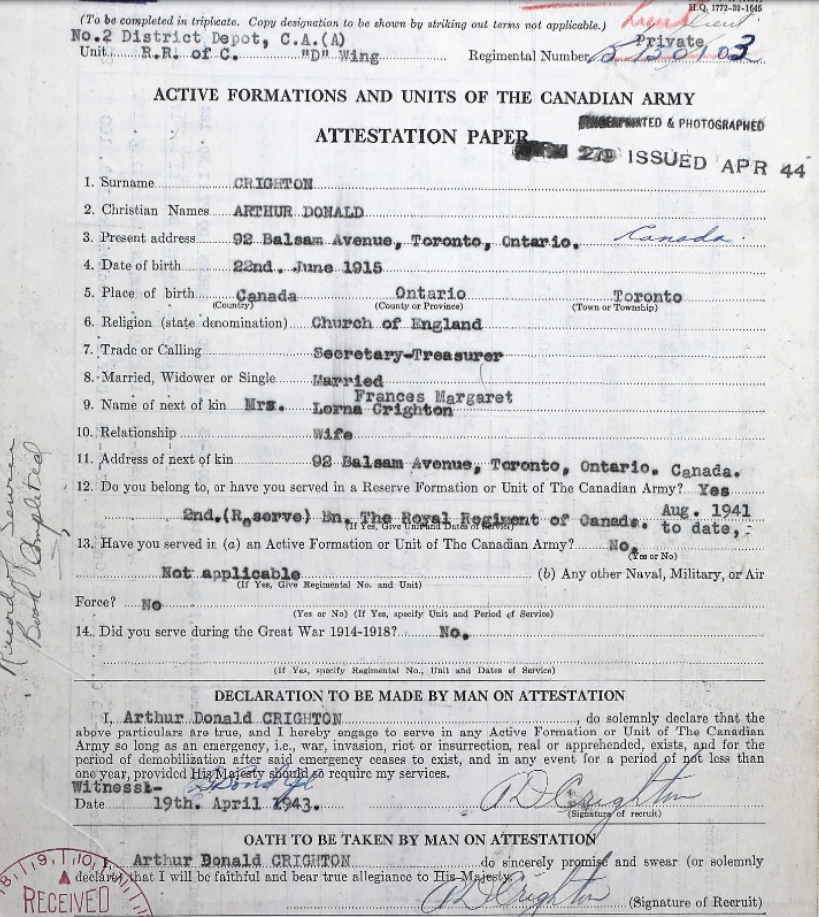 H.Q. 1772-39-1645
(To be completed in triplicate. Copy designation to be shown by striking out terms not applicable.)
No.2 District Depot, C.A.(A)
Private
Unit R.R. of C. "D" Wing Regimental Number B 130103
ACTIVE FORMATIONS AND UNITS OF THE CANADIAN ARMY
FINGERPRINTED & PHOTOGRAPHED
ATTESTATION PAPER
279 ISSUED APR 44
1. Surname CRIGHTON
2. Christian Names ARTHUR DONALD
3. Present address 92 Balsam Avenue, Toronto, Ontario. Canada.
4. Date of birth 22nd. June 1915
5. Place of birth Canada Ontario Toronto
(Country) (County or Province) (Town or Township)
6. Religion (state denomination) Church of England
7. Trade or Calling Secretary-Treasurer
8. Married, Widower or Single Married
Frances Margaret
9. Name of next of kin Mrs. Lorna Crighton
10. Relationship Wife
11. Address of next of kin 92 Balsam Avenue, Toronto, Ontario. Canada.
12. Do you belong to, or have you served in a Reserve Formation or Unit of The Canadian Army? Yes
2nd.(Reserve) Bn. The Royal Regiment of Canada. Aug. 1941
to date,-
(If Yes, Give Unit and Dates of Service)
13. Have you served in (a) an Active Formation or Unit of The Canadian Army? No.
(Yes or No)
Not applicable (b) Any other Naval, Military, or Air
(If Yes, Give Regimental No. and Unit)
Force? No
(Yes or No) (If Yes, specify Unit and Period of Service)
14. Did you serve during the Great War 1914-1918? No.
(If Yes, specify Regimental No., Unit and Dates of Service)
Record of Service
Book Completed
DECLARATION TO BE MADE BY MAN ON ATTESTATION
I, Arthur Donald CRIGHTON, do solemnly declare that the
above particulars are true, and I hereby engage to serve in any Active Formation or Unit of The Canadian
Army so long as an emergency, i.e., war, invasion, riot or insurrection, real or apprehended, exists, and for the
period of demobilization after said emergency ceases to exist, and in any event for a period of not less than
one year, provided His Majesty should so require my services.
Witness:-
Date 19th. April 1943. A D Crighton
(Signature of recruit)
OATH TO BE TAKEN BY MAN ON ATTESTATION
I, Arthur Donald CRIGHTON do sincerely promise and swear (or solemnly
declare) that I will be faithful and bear true allegiance to His Majesty.
A D Crighton (Signature of Recruit)
8 9 10
RECEIVED